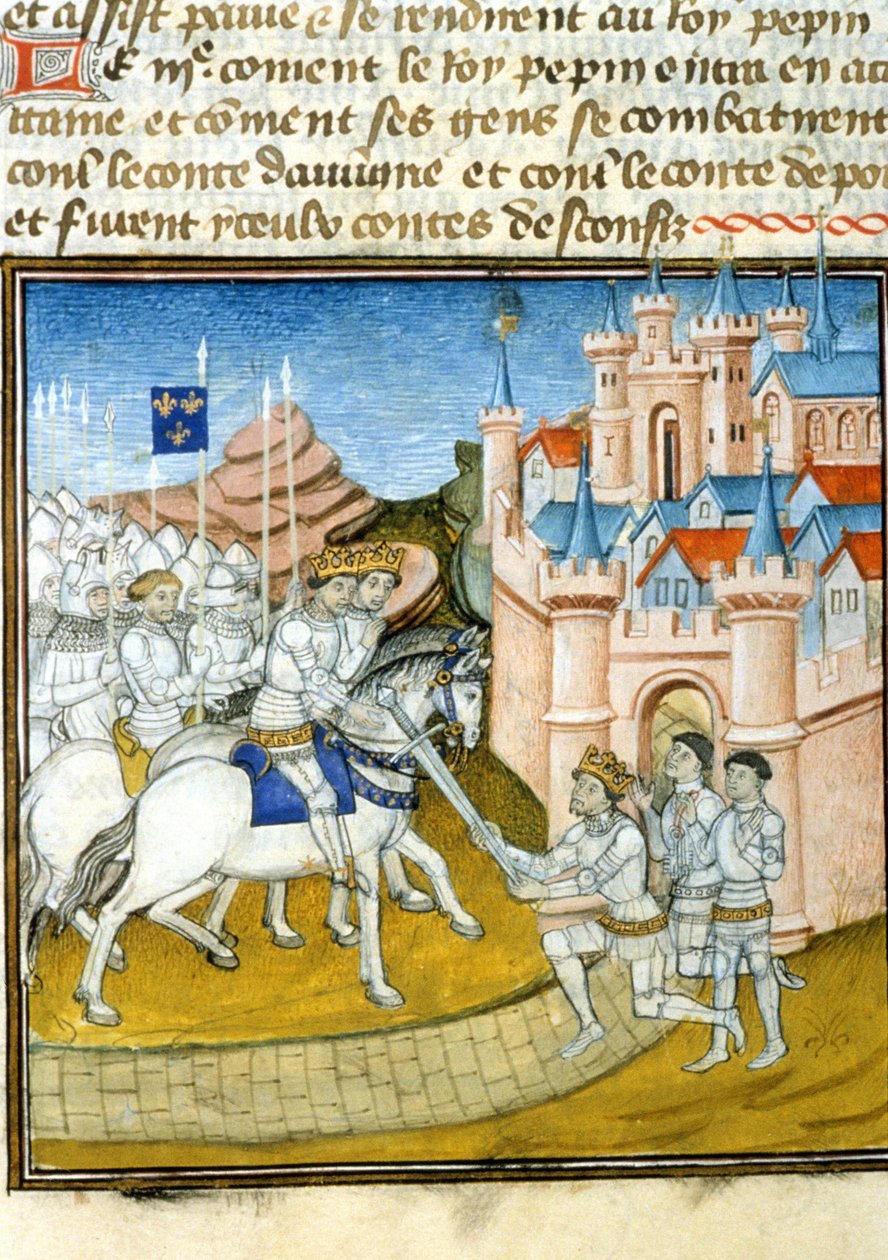 et assist pauie & se rendirent au Roy pepin
LE coment le Roy pepin entra en
itaine et cōment ses gens se combatirent
conť le conte dauūgne et conť le conte de poi
et furent yceulx contes desconfiz